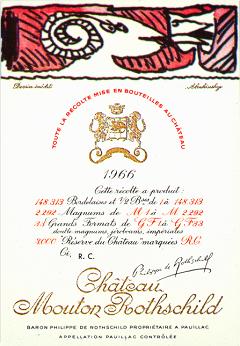 Dessin inédit
Alechinsky
TOUTE LA RÉCOLTE MISE EN BOUTEILLES AU CHÂTEAU
1966
Cette récolte a produit:
148.313 Bordelaises et 1/2 Bses de 1 à 148.313
2.292 Magnums de M 1 à M 2.292
33 Grands Formats de G F 1 à G F 33
double magnums, jeroboams, impériales
3000 "Réserve du Château" marquées R.C.
Ci, R. C.
Philippe de Rothschild
Château
Mouton Rothschild
BARON PHILIPPE DE ROTHSCHILD PROPRIÉTAIRE A PAUILLAC
APPELLATION PAUILLAC CONTRÔLÉE